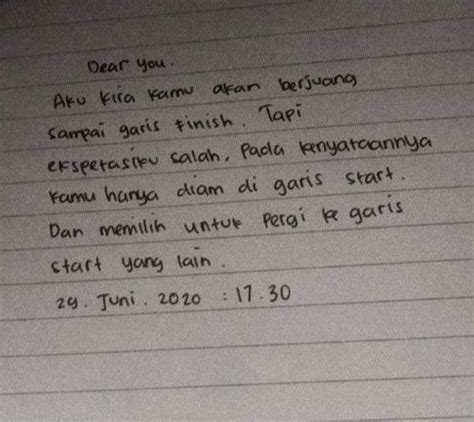 Dear you.
Aku kira kamu akan berjuang
sampai garis finish. Tapi
ekspetasiku salah, pada kenyataannya
kamu hanya diam di garis start.
Dan memilih untuk pergi ke garis
start yang lain.
29. Juni. 2020 : 17.30